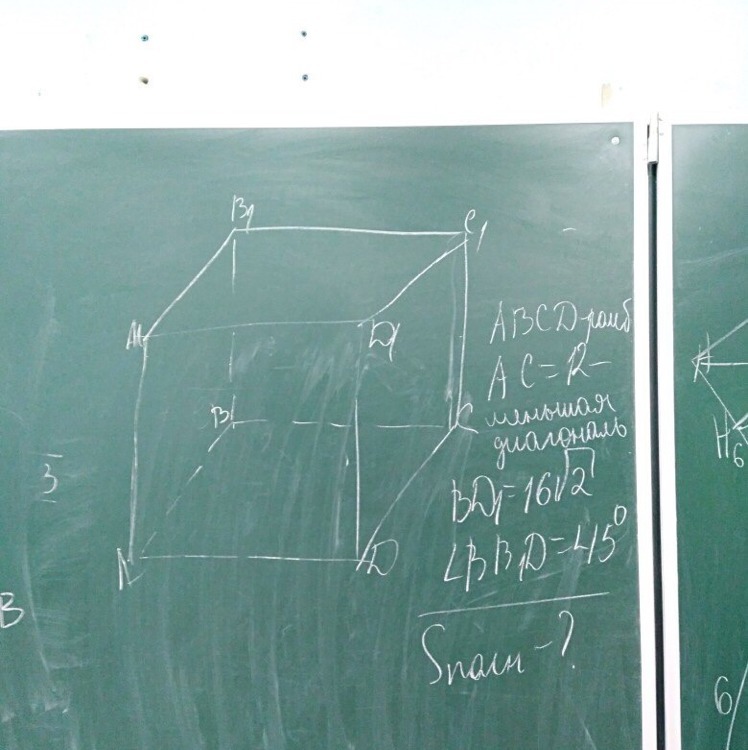 B₁
C₁
A₁
D₁
B
C
A
D
ABCD-ромб
AC=12-
меньшая
диагональ
BD₁=16√2
∠BB₁D=45°
Sполн-?
3
B
K
H
6
6